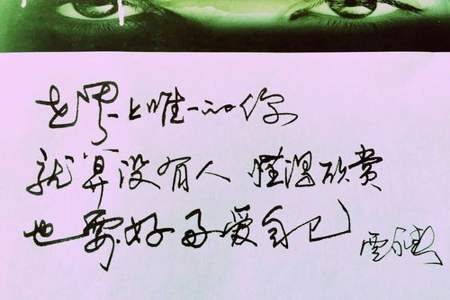 世界上唯一的你
就算没有人懂得欣赏
也要好好爱自己